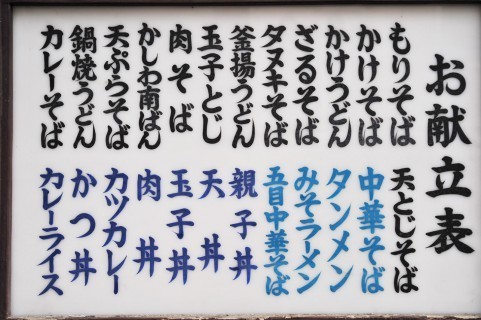 お献立表
もりそば
かけそば
かけうどん
ざるそば
タヌキそば
釜揚うどん
玉子とじ
肉そば
かしわ南ばん
天ぷらそば
鍋焼うどん
カレーそば
天とじそば
中華そば
タンメン
みそラーメン
五目中華そば
親子丼
天丼
玉子丼
肉丼
カツカレー
かつ丼
カレーライス